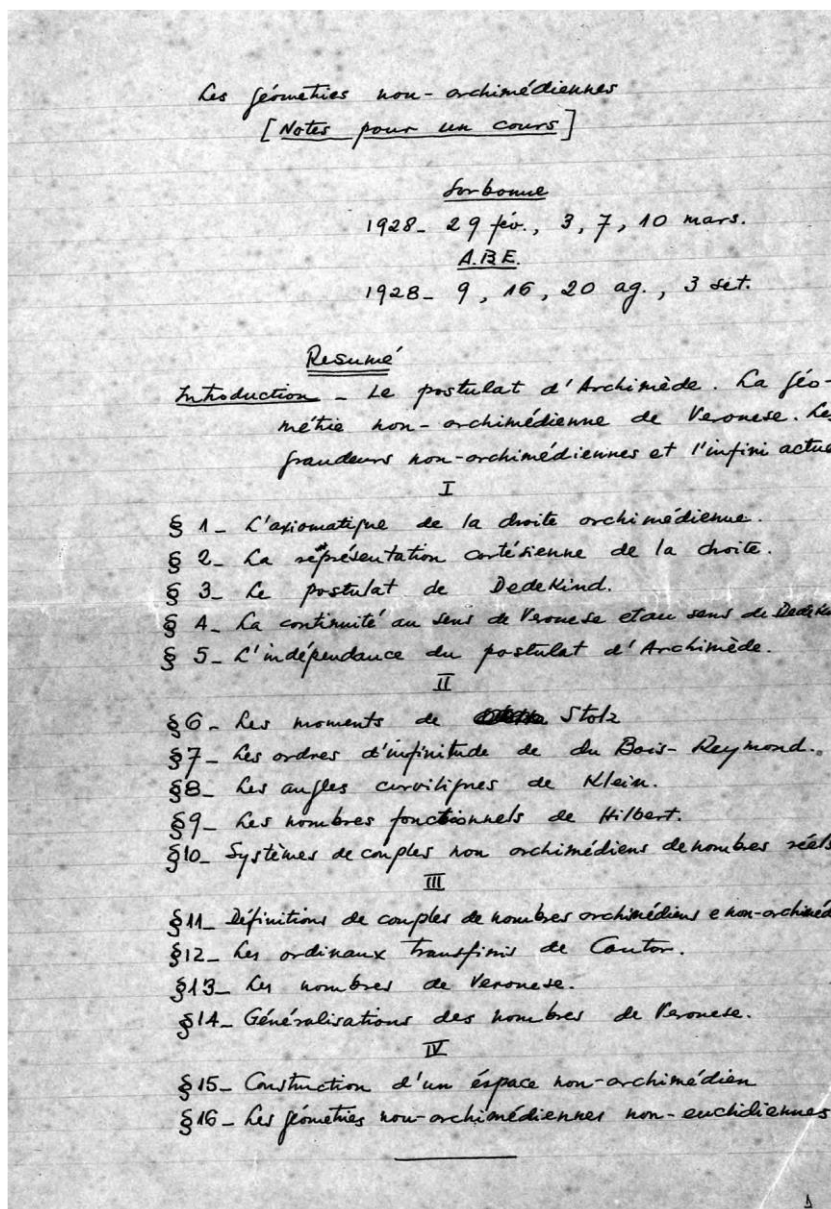 Les géométries non-archimédiennes
[Notes pour un cours]
Sorbonne
1928_ 29 fév., 3, 7, 10 mars.
A.B.E.
1928_ 9, 16, 20 ag., 3 set.
Resumé
Introduction _ Le postulat d'Archimède. La géo-
métrie non-archimédienne de Veronese. Les
grandeurs non-archimédiennes et l'infini actue
I
§ 1_ L'axiomatique de la droite archimédienne.
§ 2_ La représentation cartésienne de la droite.
§ 3_ Le postulat de DedeKind.
§ 4_ La continuité au sens de Veronese et au sens de DedeKin
§ 5_ L'indépendance du postulat d'Archimède.
II
§6_ Les moments de Stolz
§7_ Les ordres d'infinitude de du Bois-Reymond.
§8_ Les angles curvilignes de Klein.
§9_ Les nombres fonctionnels de Hilbert.
§10_ Systèmes de couples non archimédiens de nombres réels
III
§11_ Définitions de couples de nombres archimédiens e non-archiméd
§12_ Les ordinaux transfinis de Cantor.
§13_ Les nombres de Veronese.
§14_ Généralisations des nombres de Veronese.
IV
§15_ Construction d'un éspace non-archimédien
§16_ Les géometries non-archimédiennes non-euclidiennes
1